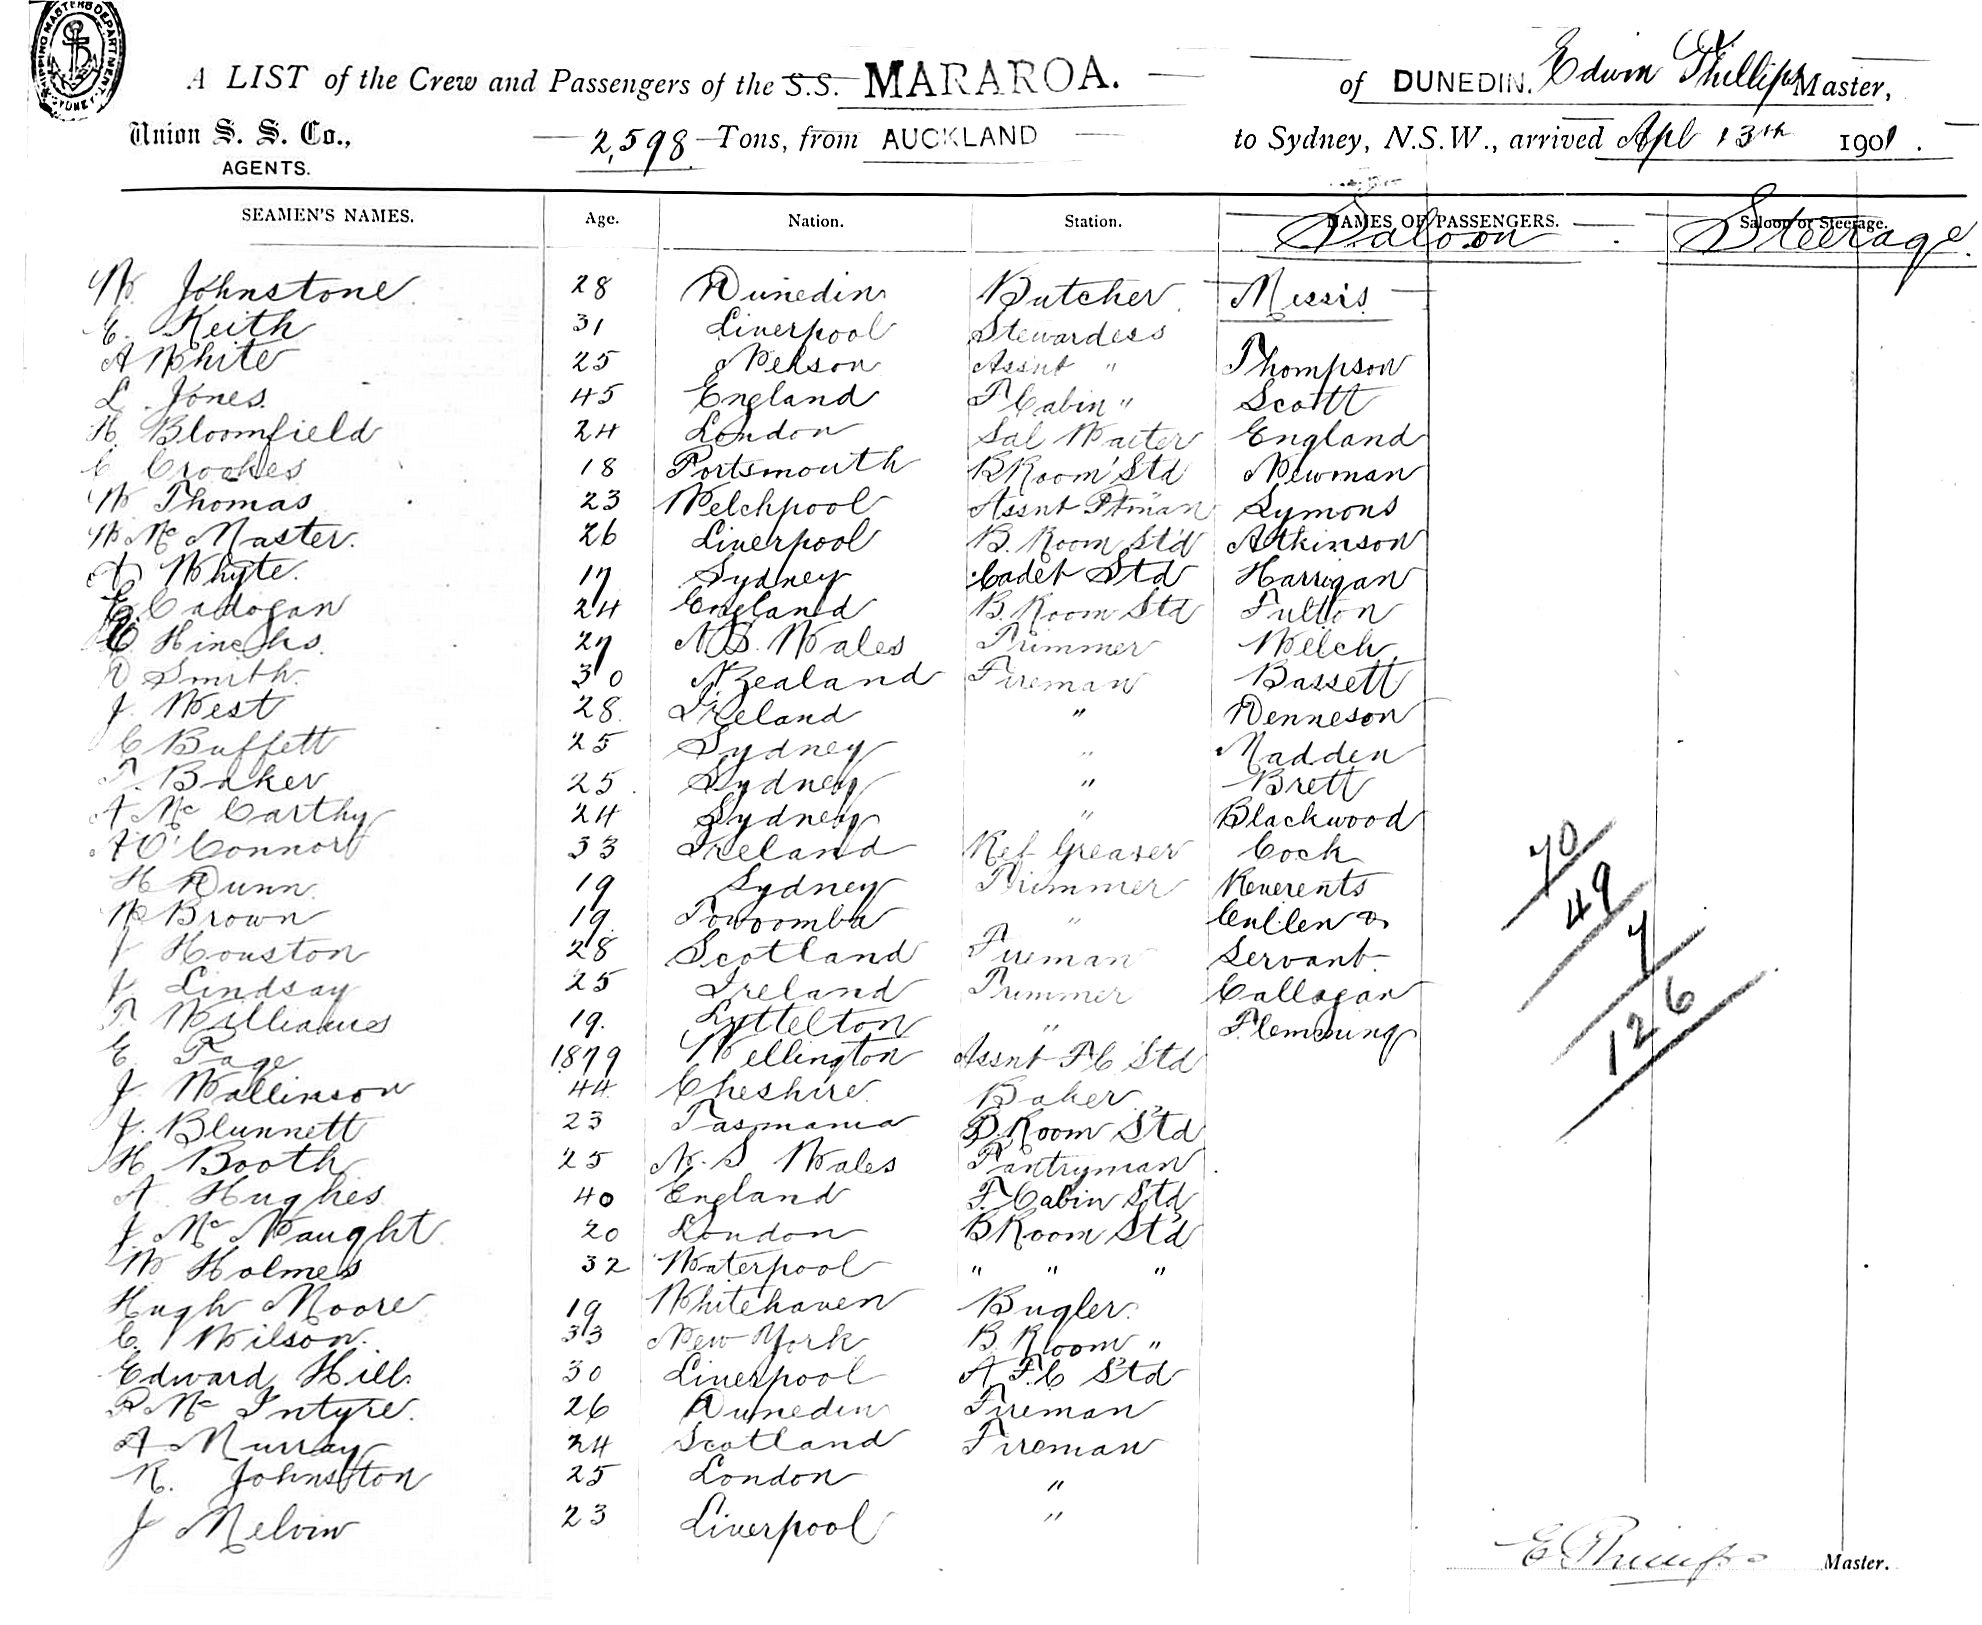 SHIPPING MASTERS DEPARTMENT. SYDNEY
A LIST of the Crew and Passengers of the S.S. MARAROA. of DUNEDIN. Edwin Phillips Master,
Union S. S. Co., 2,598 Tons, from AUCKLAND to Sydney, N.S.W., arrived Apl 13th 1901.
AGENTS.
SEAMEN'S NAMES. Age. Nation. Station. NAMES OF PASSENGERS. Saloon or Steerage.
Saloon Steerage
W Johnstone 28 Dunedin Butcher Missis
E. Keith 31 Liverpool Stewardess
A White 25 Nelson Assnt " Thompson
L. Jones. 45 England F Cabin " Scott
H. Bloomfield 24 London Sal Waiter England
C Crookes 18 Portsmouth B Room Std Newman
W Thomas 23 Welchpool Assnt Ptman Symons
W Mc Master. 26 Liverpool B. Room Std Atkinson
A Whyte. 17 Sydney Cadet Std Harrigan
C. Cadogan 24 England B. Room Std Fulton
C Hinchs. 27 N.S. Wales Trimmer Welch
D Smith. 30 N Zealand Fireman Bassett
J. West 28. Ireland " Denneson
C Buffett 25 Sydney " Madden
T. Baker 25. Sydney " Brett
A Mc Carthy 24 Sydney " Blackwood
A O'Connor 33 Ireland Ref Greaser Cock
H Dunn. 19 Sydney Trimmer Reverents
W Brown 19. Towoomba " Cullen &
J Houston 28 Scotland Fireman Servant
J. Lindsay 25 Ireland Trimmer Callogan
T. Williams 19. Lyttelton " Flemming
E. Page 1879 Wellington Assnt F C Std
J. Wallinson 44 Cheshire Baker
J. Blunnett 23 Tasmania B. Room Std
H Booth 25 N. S Wales Pantryman
A. Hughes 40 England F. Cabin Std
J. Mc Naught 20 London B Room Std
W Holmes 32 Waterpool " " "
Hugh Moore 19 Whitehaven Bugler.
C. Wilson. 33 New York B Room "
Edward Hill. 30 Liverpool A F.C Std
P Mc Intyre. 26 Dunedin Fireman
A Murray 24 Scotland Fireman
R. Johnston 25 London "
J Melvin 23 Liverpool "
70
49
7
126
E Phillips Master.